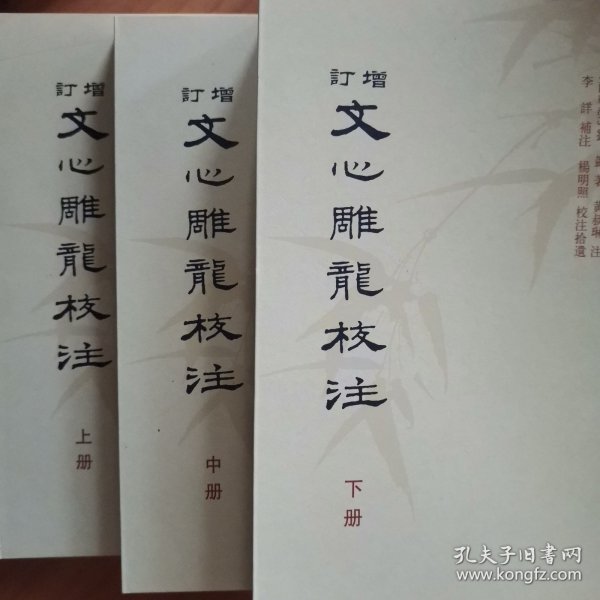 增訂
文心雕龍校注
上册
增訂
文心雕龍校注
中册
增訂
文心雕龍校注
下册
著 黃叔琳 注
李詳 補注 楊明照 校注拾遺
孔夫子旧书网
www.kongfz.com